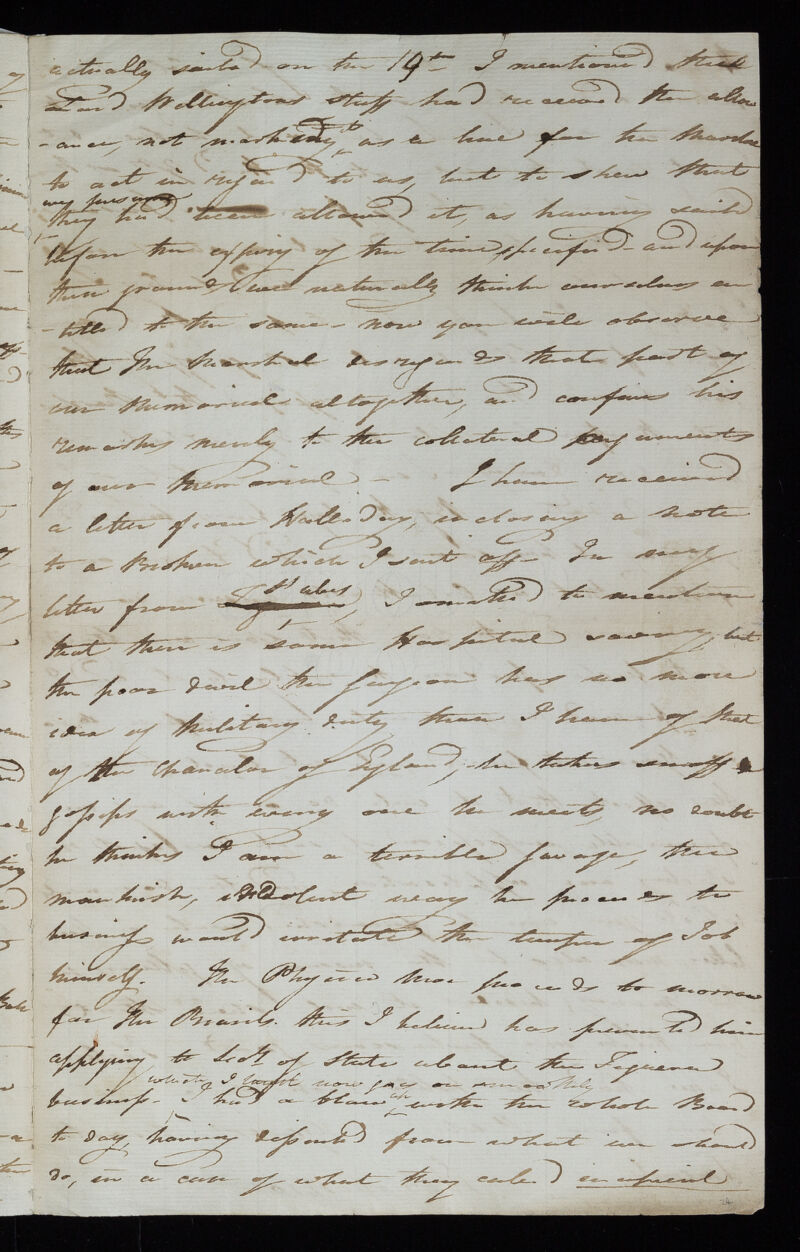 actually sailed on the 19th I mentioned that
Lord Wellingtons Staff had received the allow
-ance, not marking it, as a line for the Marshal
to act in regard to us, but to shew that
they had been allowed it, as having sailed
before the expiry of the time specified - and upon
these grounds we naturally think ourselves en
-titled to the same - now you will observe
that The Marshal disregards that part of
our Memorial altogether, and confines his
remarks merely to the collateral arguments
of our Memorial - I have received
a letter from Halliday, inclosing a note
to a Broker which I sent off - In my
letter from St Ubes, I omitted to mention
that there is some Hospital saving, but
the poor devil the Surgeon has no more
idea of Military duty than I have of that
of the Chancelor of England, he takes snuff &
gossips with every one he meets, no doubt
he thinks I am a terrible savage, the
monkish, indolent way he proceeds to
business would irritate the temper of Job
himself. The Physico Mor proceeds to morrow
for the Brasils. this I believe has prevented him
applying to Secy of State about the Figuera
which I trust now goes on smoothly
business - I had a blow with the whole Board
to day, having dissented from what we should
do, in a case of what they called incipient